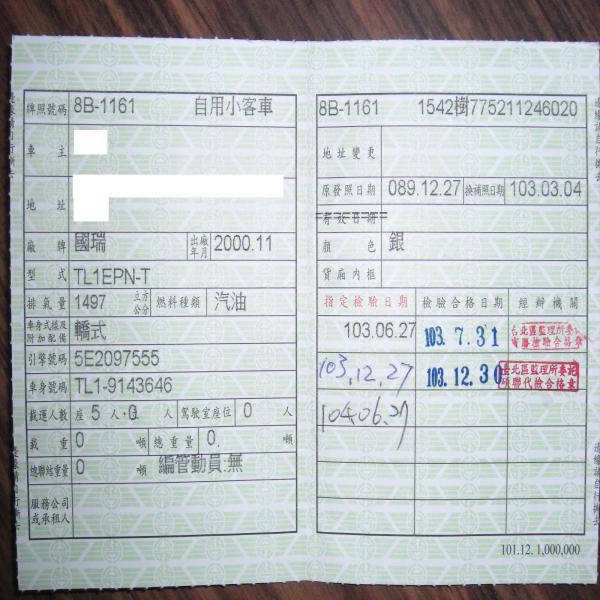 牌照號碼 8B-1161 自用小客車
車主
地址
廠牌 國瑞 出廠年月 2000.11
型式 TL1EPN-T
排氣量 1497 立方公分 燃料種類 汽油
車身式樣及附加配備 轎式
引擎號碼 5E2097555
車身號碼 TL1-9143646
載運人數 座 5 人·位 0 人 駕駛室座位 0 人
載重 0 噸 總重量 0. 噸
總聯結重量 0 噸 編管動員:無
服務公司或承租人
8B-1161 1542樹775211246020
地址變更
原發照日期 089.12.27 換補照日期 103.03.04
有效日期
顏色 銀
貨廂內框
指定檢驗日期 檢驗合格日期 經辦機關
103.06.27 103.7.31 台北區監理所委
103.12.27 103.12.30 臺北區監理所委託
代檢合格章
104.06.27
101.12.1,000,000